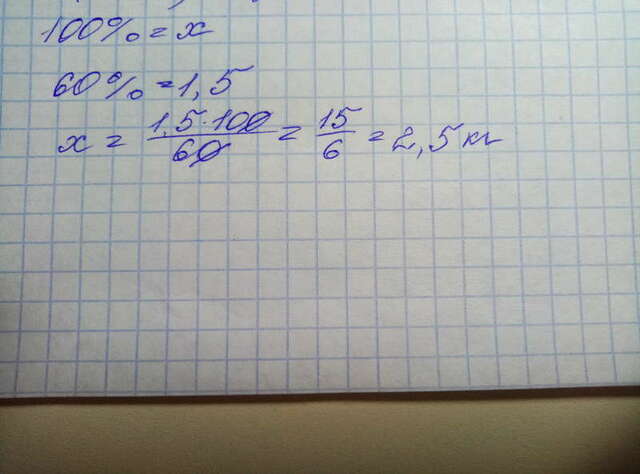 100% = x
60% = 1,5
x = 1,5·100/60 = 15/6 = 2,5 кг